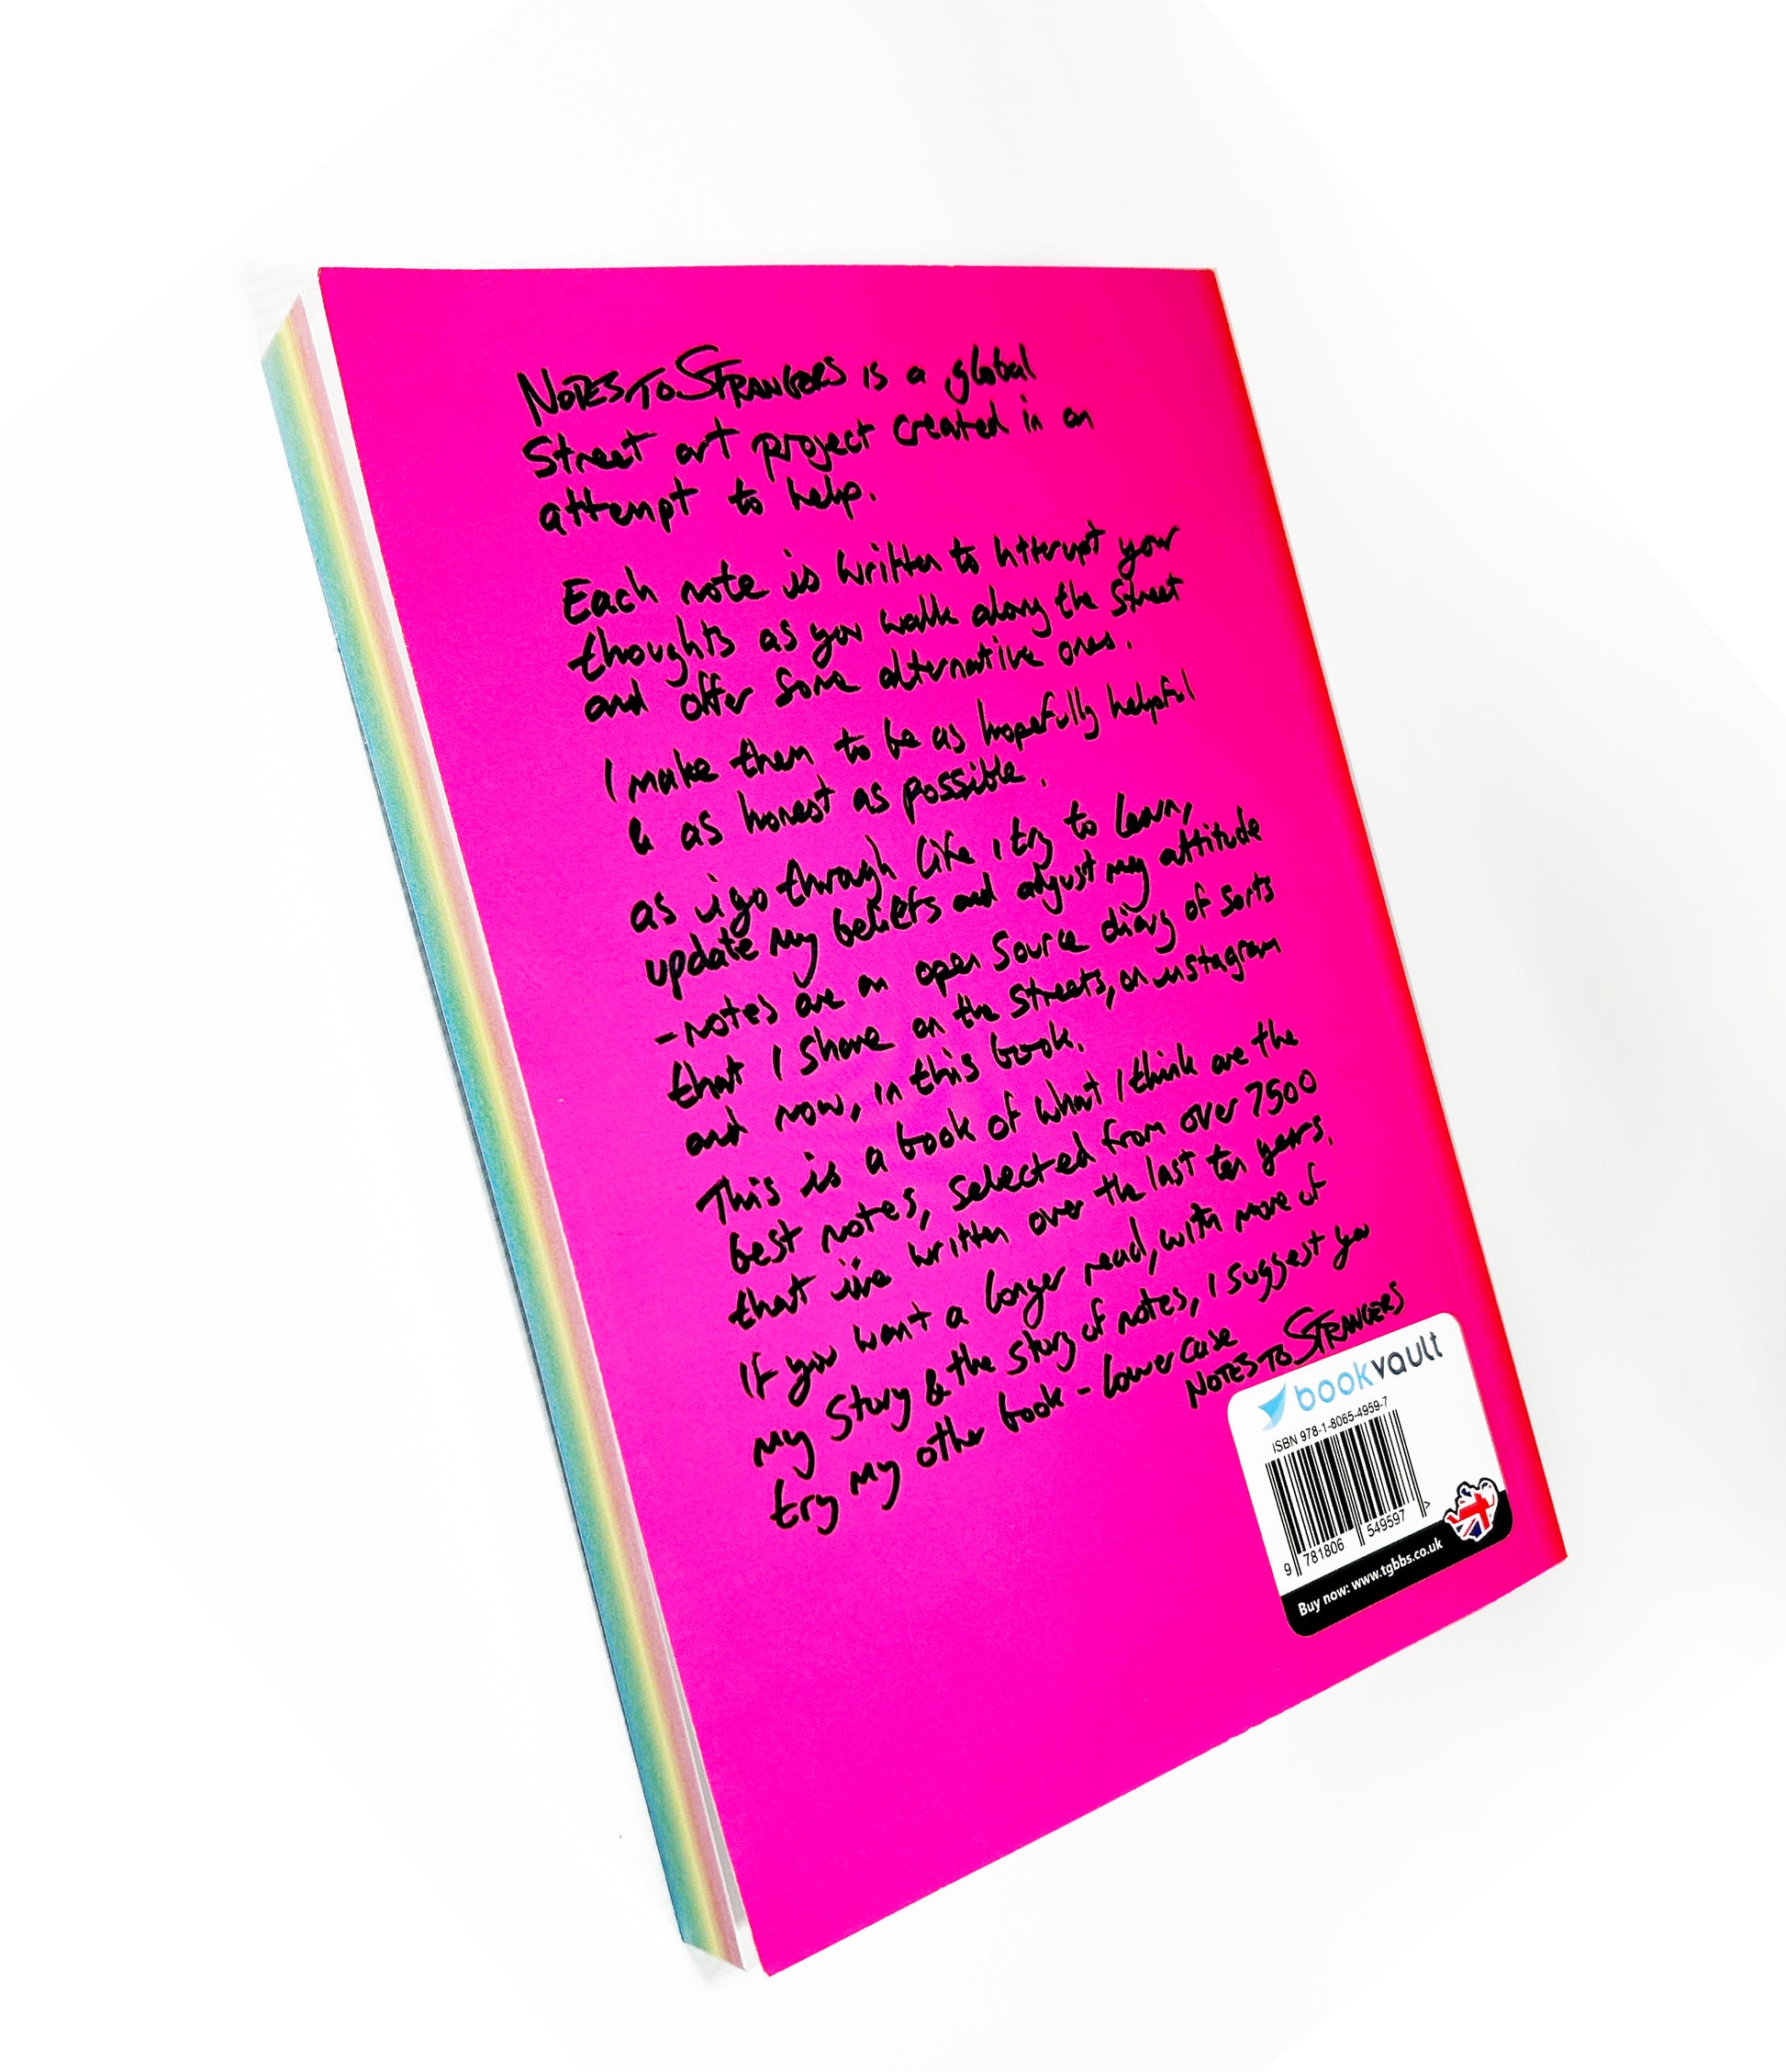 NOTES TO STRANGERS is a global
Street art project created in an
attempt to help.
Each note is written to interrupt your
thoughts as you walk along the street
and offer some alternative ones.
I make them to be as hopefully helpful
& as honest as possible.
as i go through life i try to learn,
update my beliefs and adjust my attitude
- notes are an open source diary of sorts
that I share on the streets, on instagram
and now, in this book.
This is a book of what I think are the
best notes, selected from over 7500
that i've written over the last ten years.
If you want a longer read, with more of
my story & the story of notes, I suggest you
try my other book - lowercase
NOTES TO STRANGERS
bookvault
ISBN 978-1-8065-4959-7
9 781806 549597 >
Buy now: www.tgbbs.co.uk